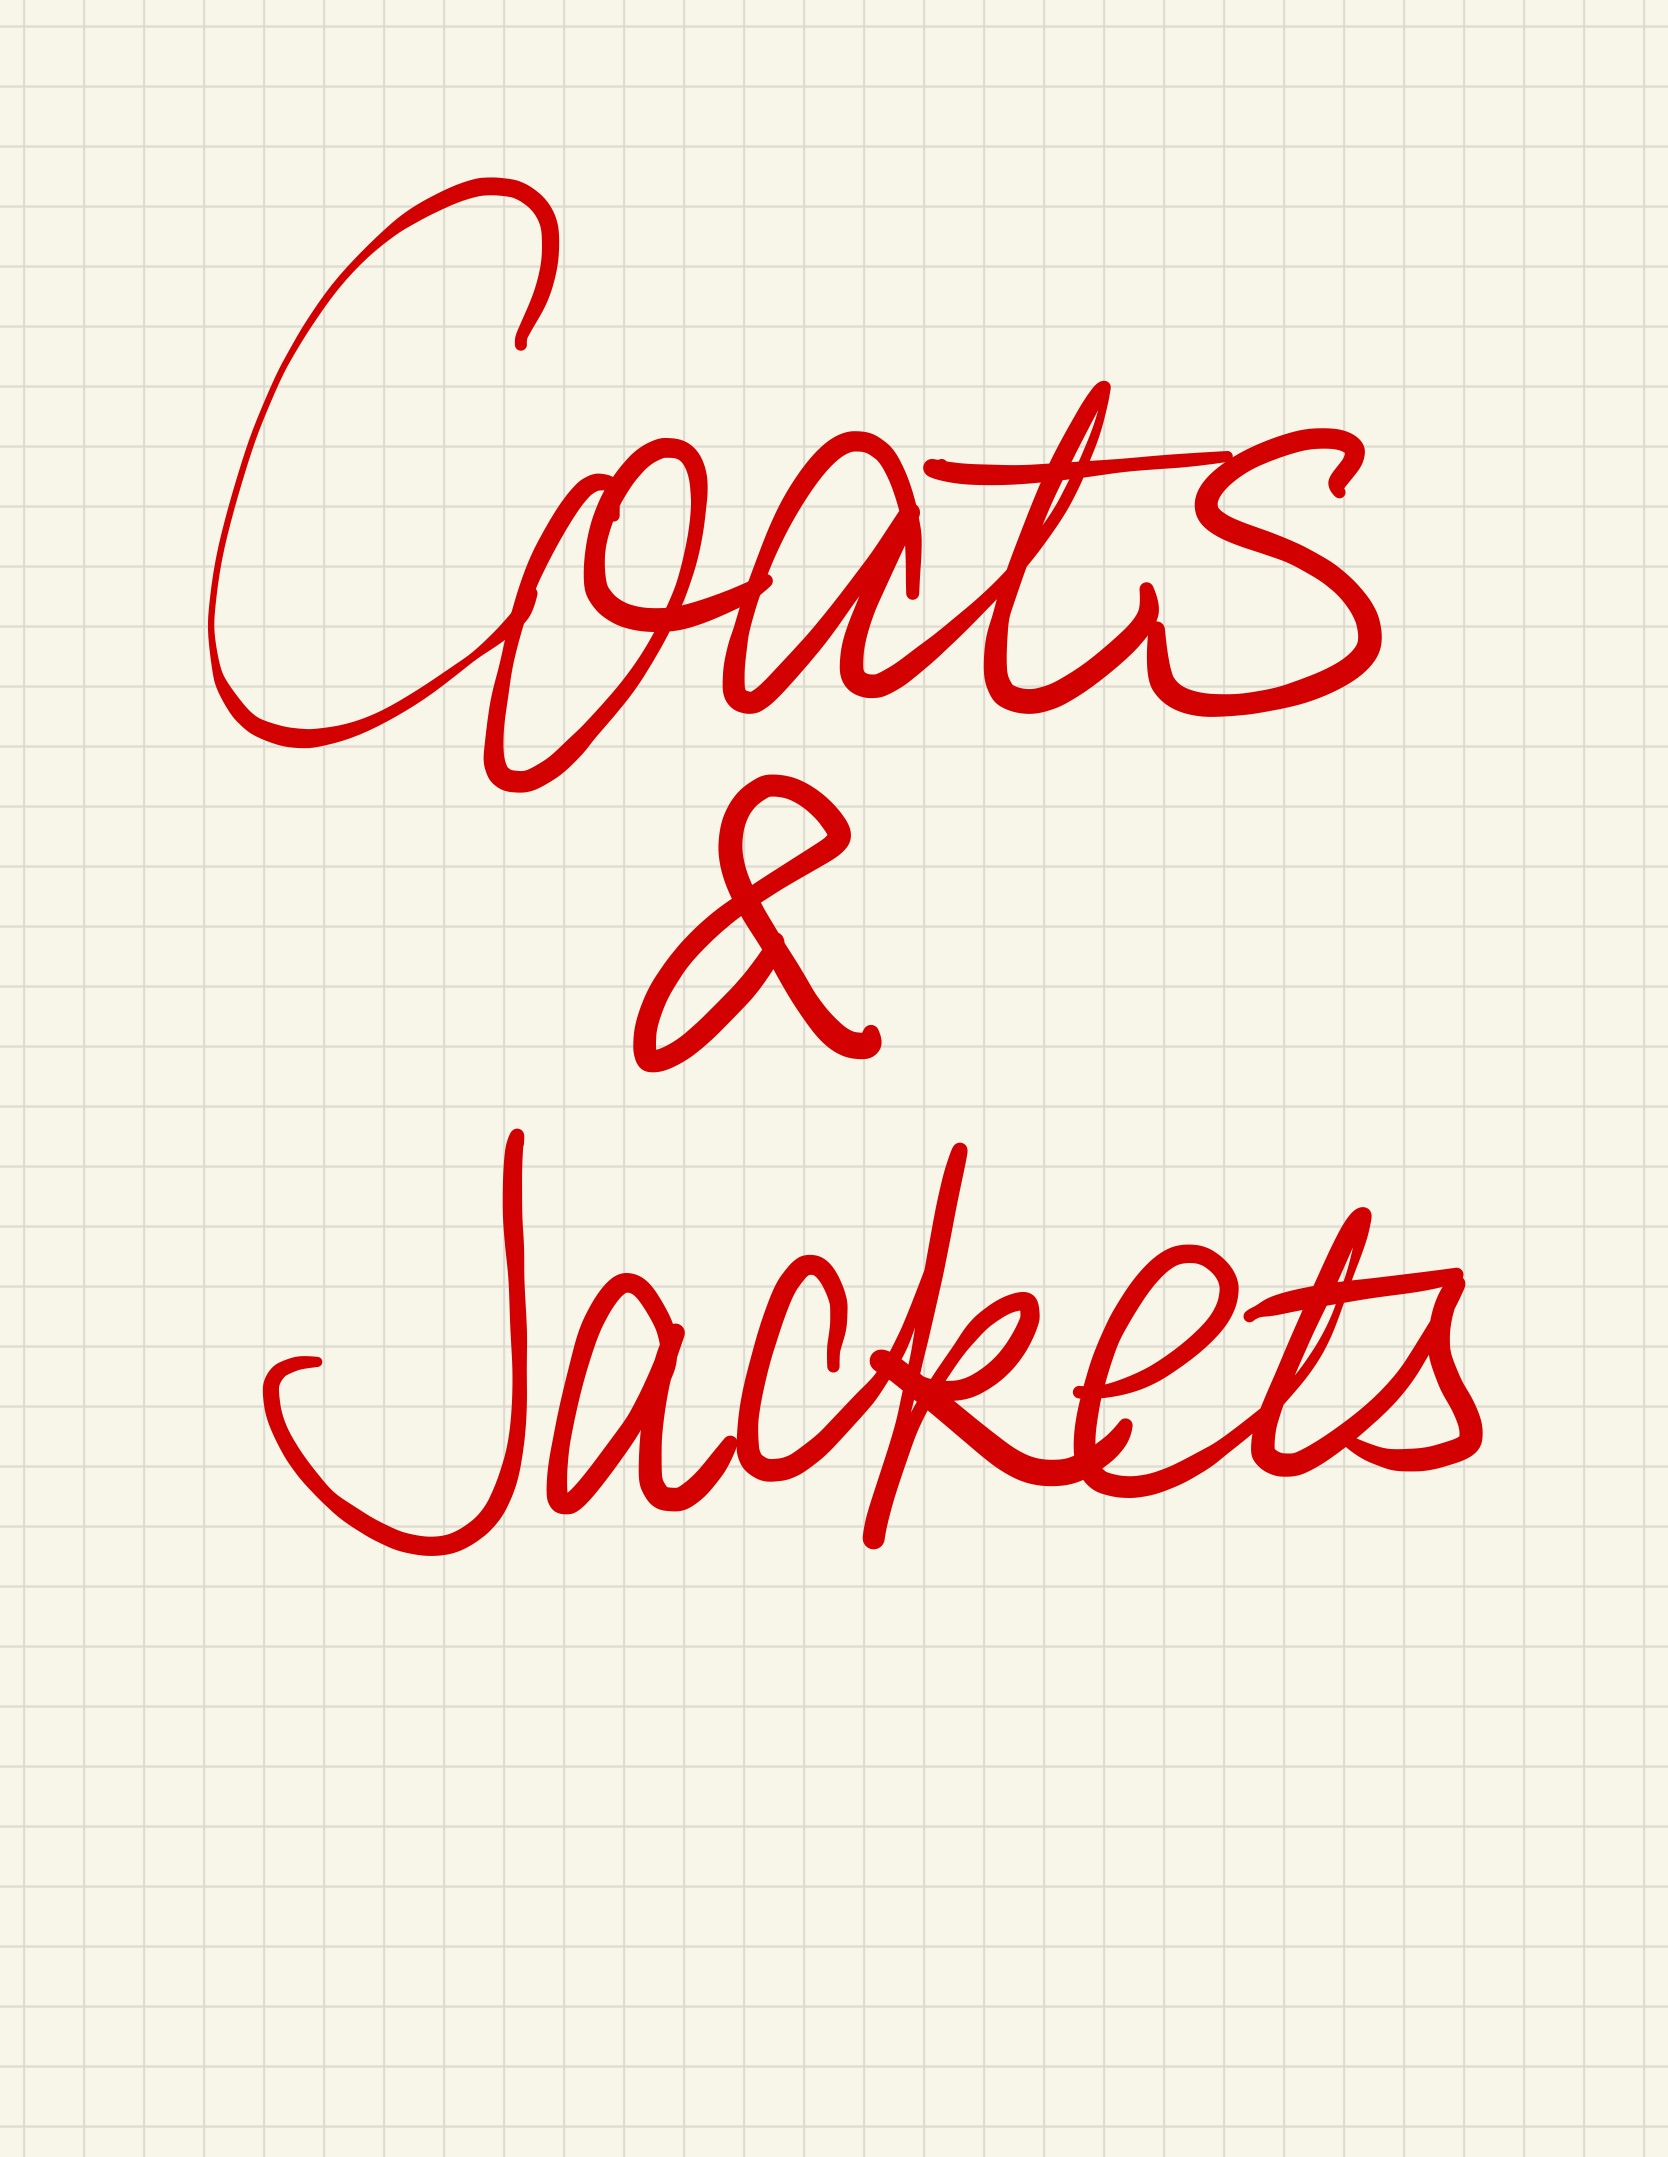 Coats
&
Jackets